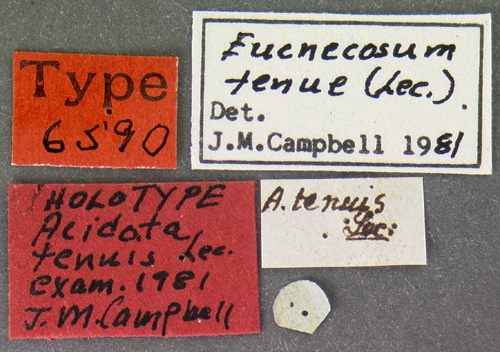 Type
6590
Eucnecosum
tenue (Lec.).
Det.
J.M.Campbell 1981
HOLOTYPE
Acidota
tenuis Lec.
exam. 1981
J.M. Campbell
A. tenuis
Lec.